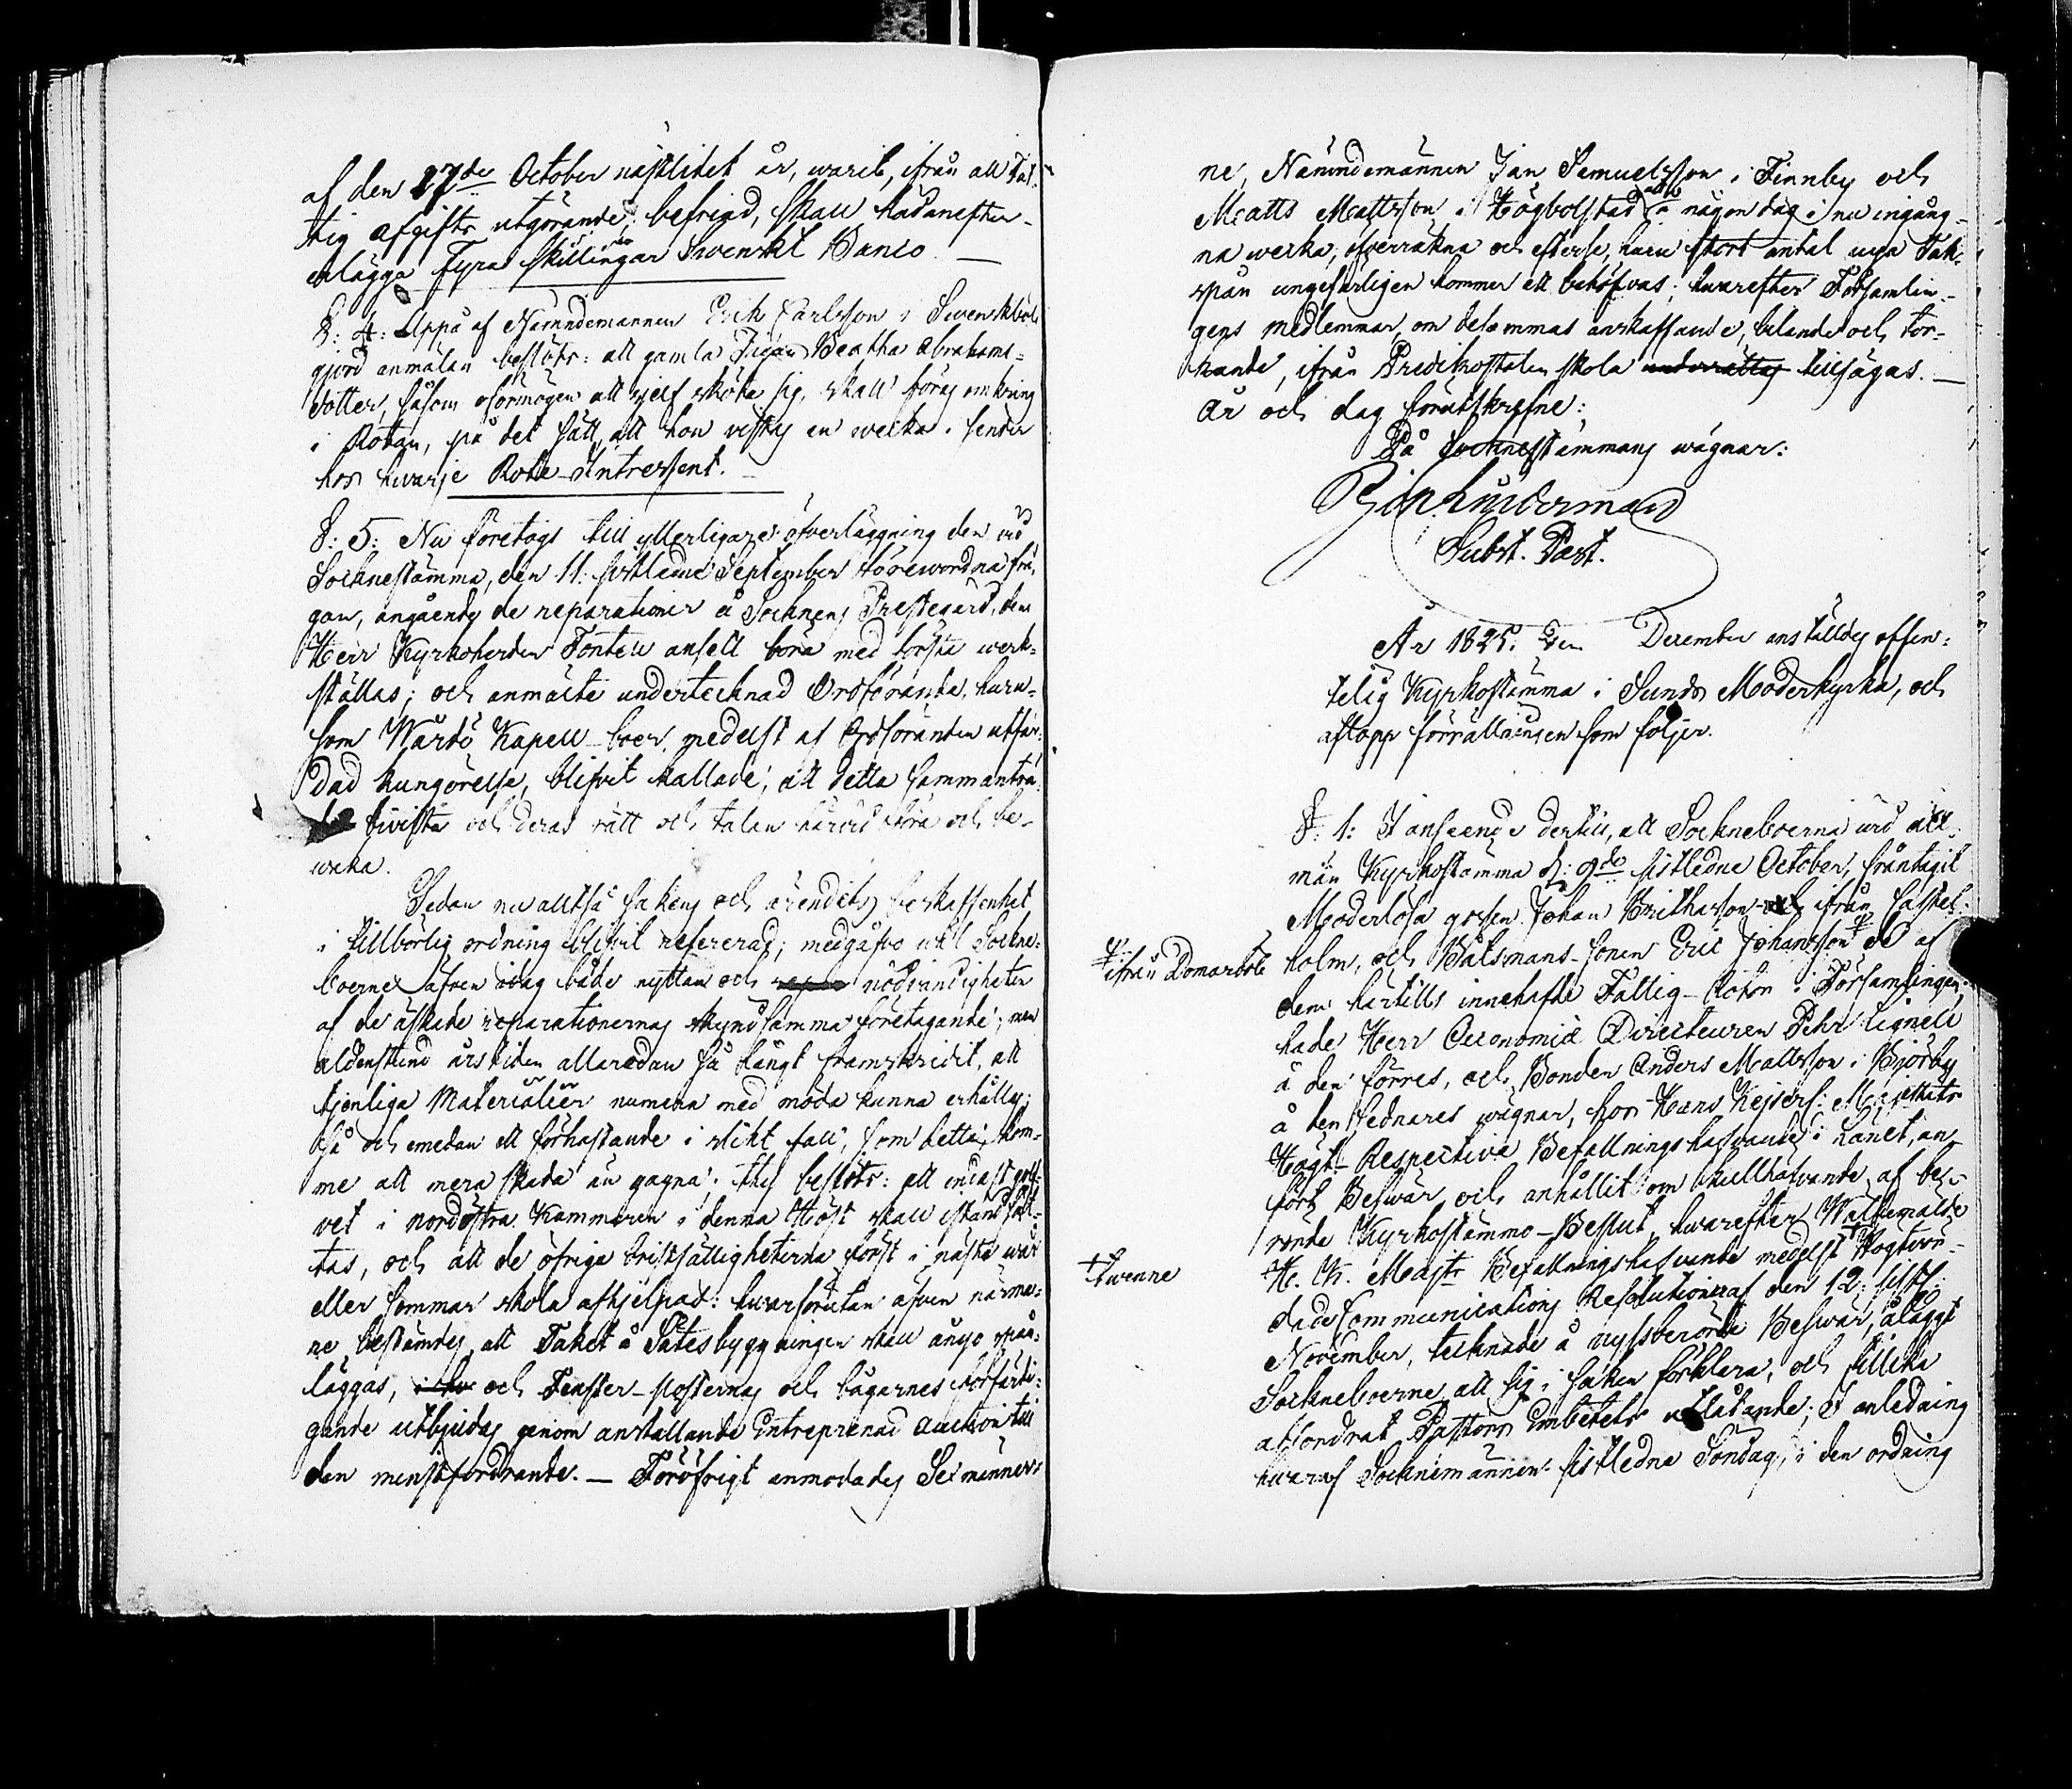 af den 27de October nästlidet år, warit, ifrån all Fat-
tig afgifts utgörande, befriad, skall hädanefter
erlägga Fyra skillingar Swenskt Banco. —
§: 4: Uppå af Nämndemannen Erik Carlsson i Swensböle
gjord anmälan beslöts: att gamla Pigan Beatha Abrahams-
dotter, såsom oförmögen att sjelf sköta sig, skall föras omkring
i Rotan, på det sätt, att hon vistas en wecka i sender
hos hwarje Rote-Intressent. —
§: 5: Nu företogs till ytterligare öfverläggning den vid
Socknestämma, den 11: sistledne September förewordna frå-
gan, angående de reparationer å Socknens Prestegård, dem
Herr Kyrkoherden Fontell ansett böra med första werk-
ställas; och anmälte undertecknad Ordförande, huru-
som Wårdö Kapell-boer, medelst af Ordföranden utfär-
dad kungörelse, blifvit kallade, att detta sammanträ-
de bivista och deras rätt och talan härvid föra och be-
waka.
Sedan nu alltså sakens och ärendets beskaffenhet
i tillbörlig ordning blifvit refererad; medgåfvo wäl Sockne-
boerne äfven idag både nyttan och nödvändigheten
af de äskade reparationernas skyndsamma företagande; men
aldenstund årstiden allaredan så långt framskridit, att
tjenliga Materialier numera med möda kunna erhållas,
så och emedan ett förhastande i slikt fall, som detta, kom-
me att mera skada än gagna; thy beslöts: att endast gol-
vet i nordöstra Kammaren i denna Höst skall iståndsät-
tas, och att de öfriga bristfälligheterna först i nästa wår
eller sommar skola afhjelpas: hwarförutan äfven närma-
re bestämdes, att Taket å Sätesbyggningen skall ånyo spån-
läggas, och Fenster-posternas och bågarnes förfärdi-
gande utbjudas genom anställande Entreprenad auction till
den minstfordrande. — Föröfrigt anmodades Sexmänner-
ne, Nämndemännen Jan Semuelsson i Finnby och
Matts Mattsson i Högbolstad att å någon dag i nu ingång-
na wecka, öfverräkna och efterse, huru stort antal nya Tak-
spån ungefärligen kommer att behöfvas; hwarefter Församlin-
gens medlemmar, om desammas anskaffande, belände och tor-
kande, ifrån Predikostolen skola underrättas tillsägas. —
År och dag förutskrefne:
På Socknestämmans wägnar:
Subst. Past.
År 1825. Den December anställdes offen-
telig Kyrkostämma i Sunds Moderkyrka, och
aflopp förrättningen som följer.
§: 1: I anseende dertill, att Sockneboerna vid all-
män Kyrkostämma d: 9de sistledne October, fråntagit
Moderlösa gossen Johan Brithasson ifrån Castel-
holm, och Båtsmans-sonen Eric Johansson de af
ifrån Domarböle
dem härtills innehafde Fattig-Rotor i Församlingen;
hade Herr Oeconomiæ Directeuren Pehr Lignell
å den förres, och Bonden Anders Mattsson i Björby
å den sednares wägnar, hos Hans Kejserl: Majestäts
Högt-Respective Befallningshafvande i Länet, an-
fört Beswär, och anhållit om kullhäfvande af be-
rörde Kyrkostämmo-Beslut, hwarefter Wälbemälde
H. K. Majts Befallningshafvande medelst Högtvör-
twenne
dade Communications Resolutioner af den 12: sistl.
November, tecknade å nyssberörde Beswär, ålagt
Sockneboerne, att sig i saken förklara, och tillika
affordrat Pastors Embetets utlåtande; I anledning
hwaraf Sockenmännen sistledne Söndag, i den ordning